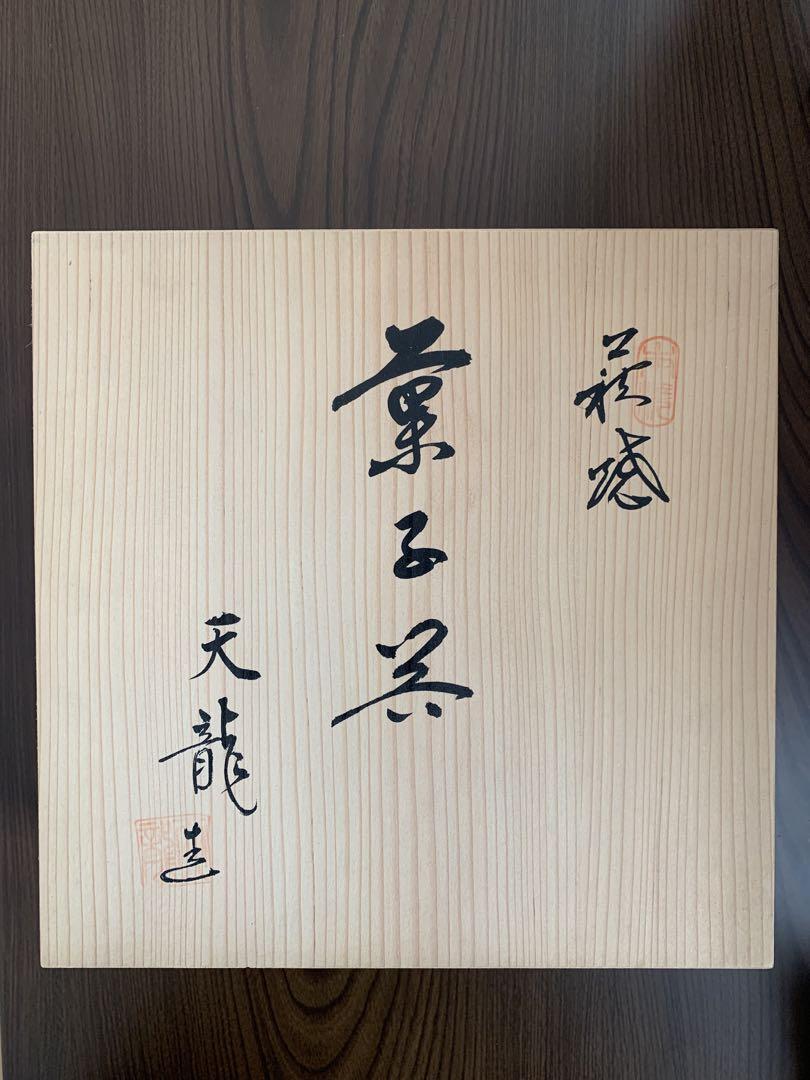 萩
菓子器
天龍造